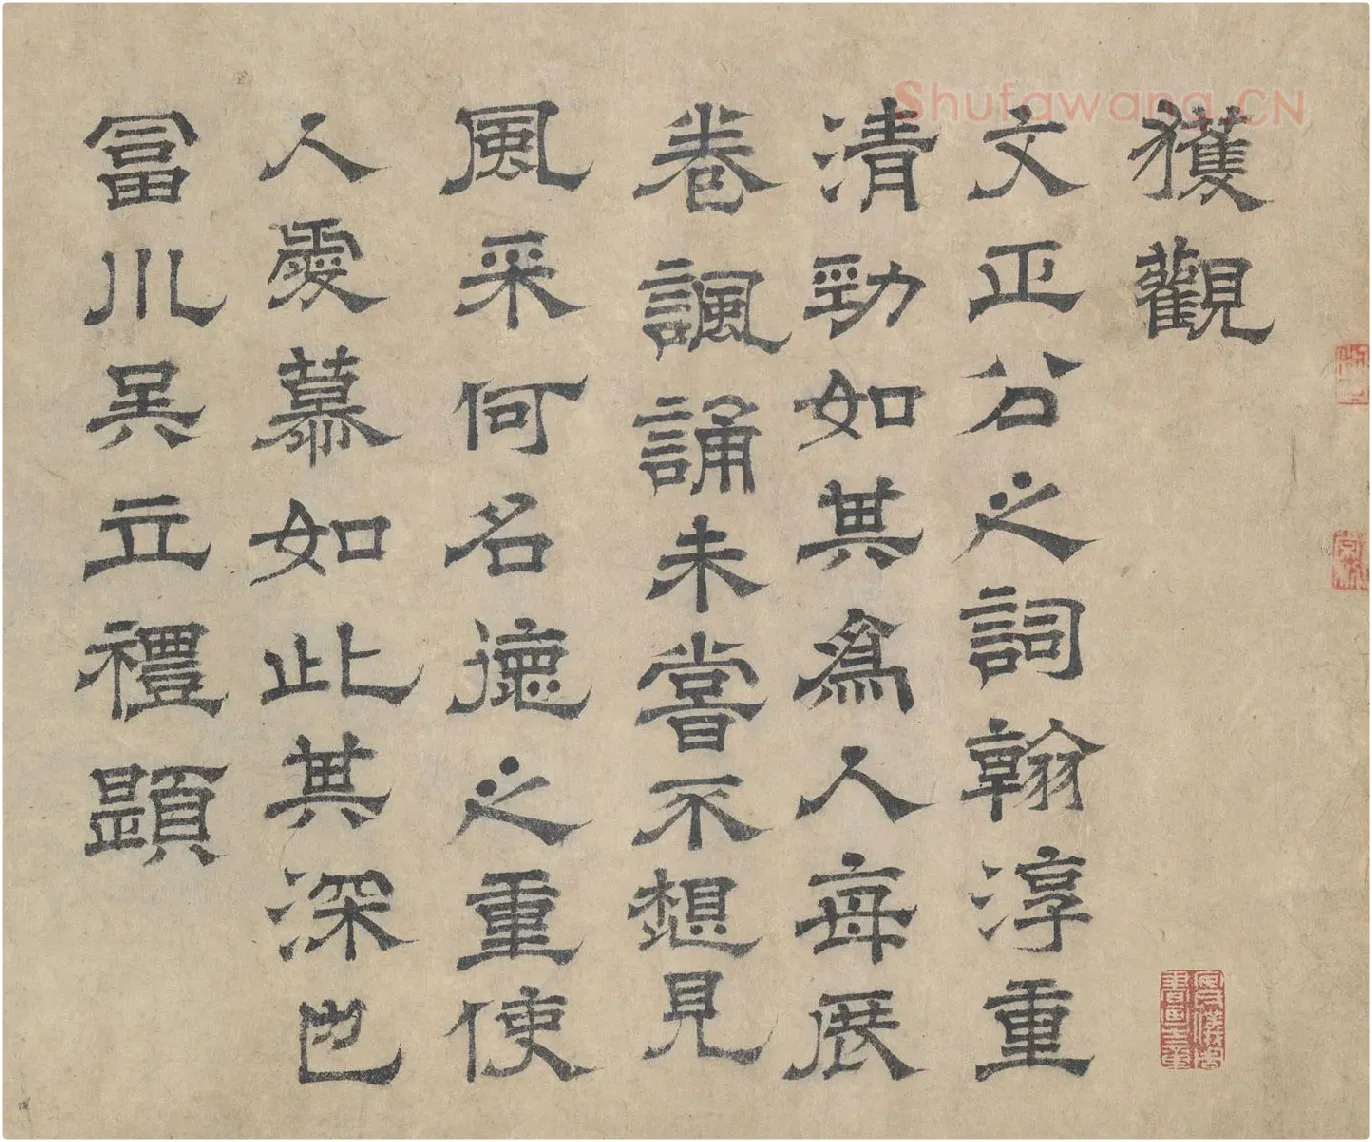 獲觀
文正公之詞翰淳重
清勁如其為人每展
卷諷誦未嘗不想見
風采何名德之重使
人愛慕如此其深也
富川吳立禮題
Shufawang.CN